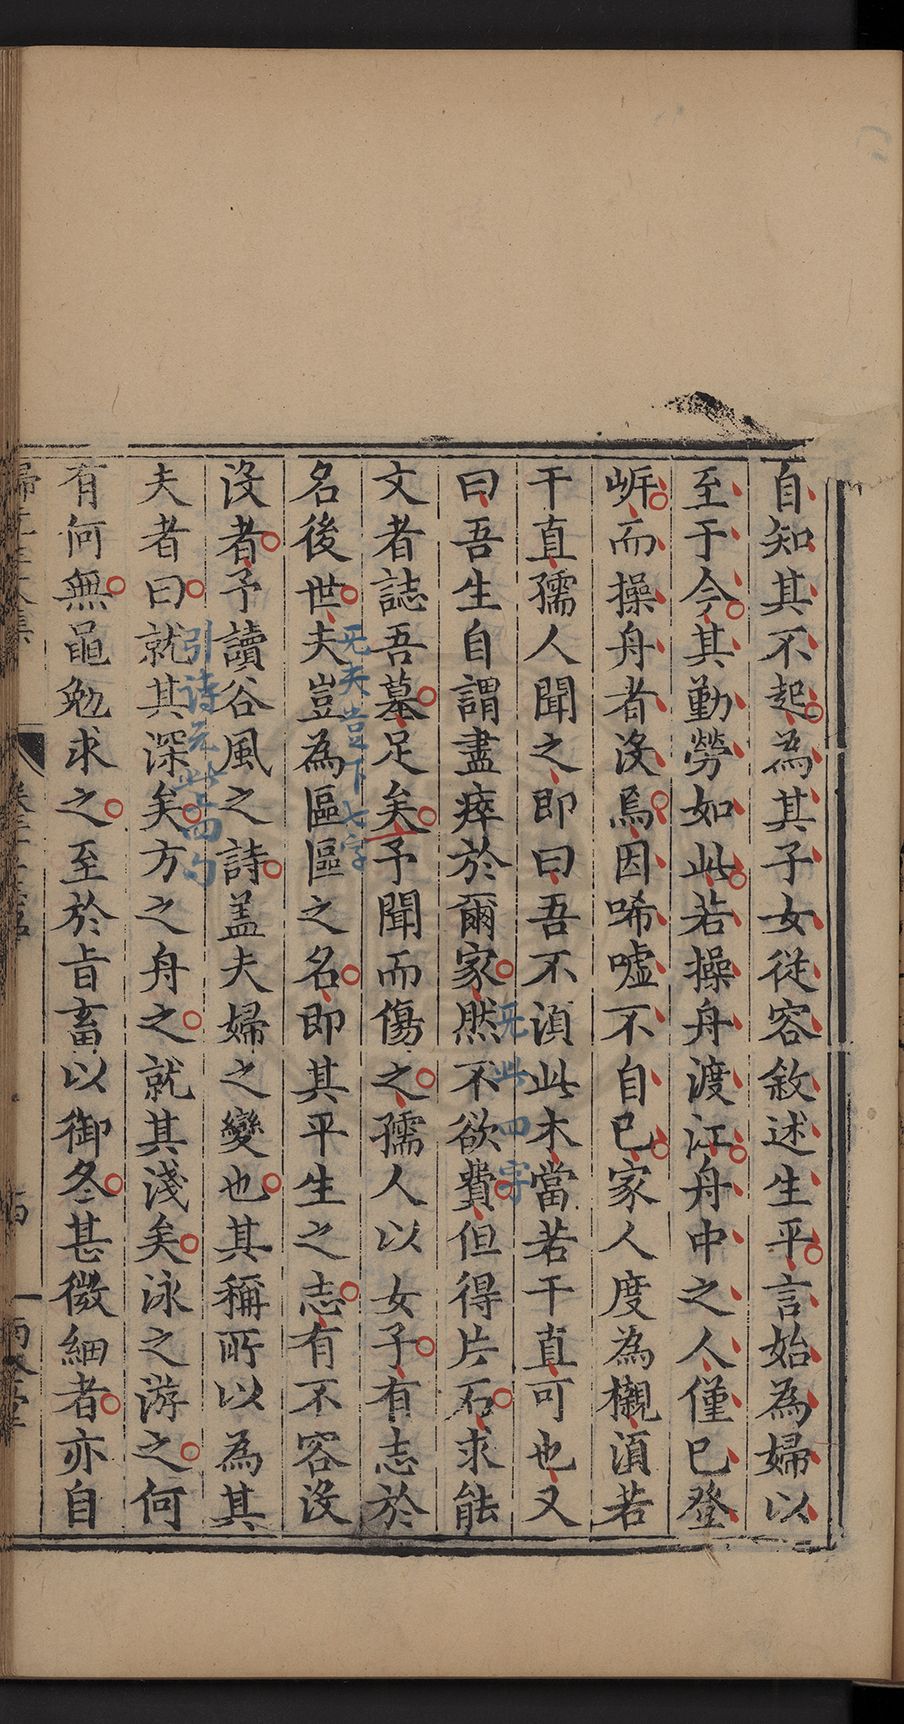 自知其不起為其子女從容敘述生平言始為婦以
至于今其勤勞如此若操舟渡江舟中之人僅已登
㟁而操舟者沒焉因唏噓不自已家人度為櫬湏若
干直孺人聞之即曰吾不湏此木當若干直可也又
曰吾生自謂盡瘁於爾家然不欲費但得片石求能
文者誌吾墓足矣予聞而傷之孺人以女子有志於
名後世夫豈為區區之名即其平生之志有不容沒
沒者予讀谷風之詩盖夫婦之變也其稱所以為其
夫者曰就其深矣方之舟之就其淺矣泳之游之何
有何無黽勉求之至於旨畜以御冬甚微細者亦自
无此四字
无夫豈下七字
引诗无此四句